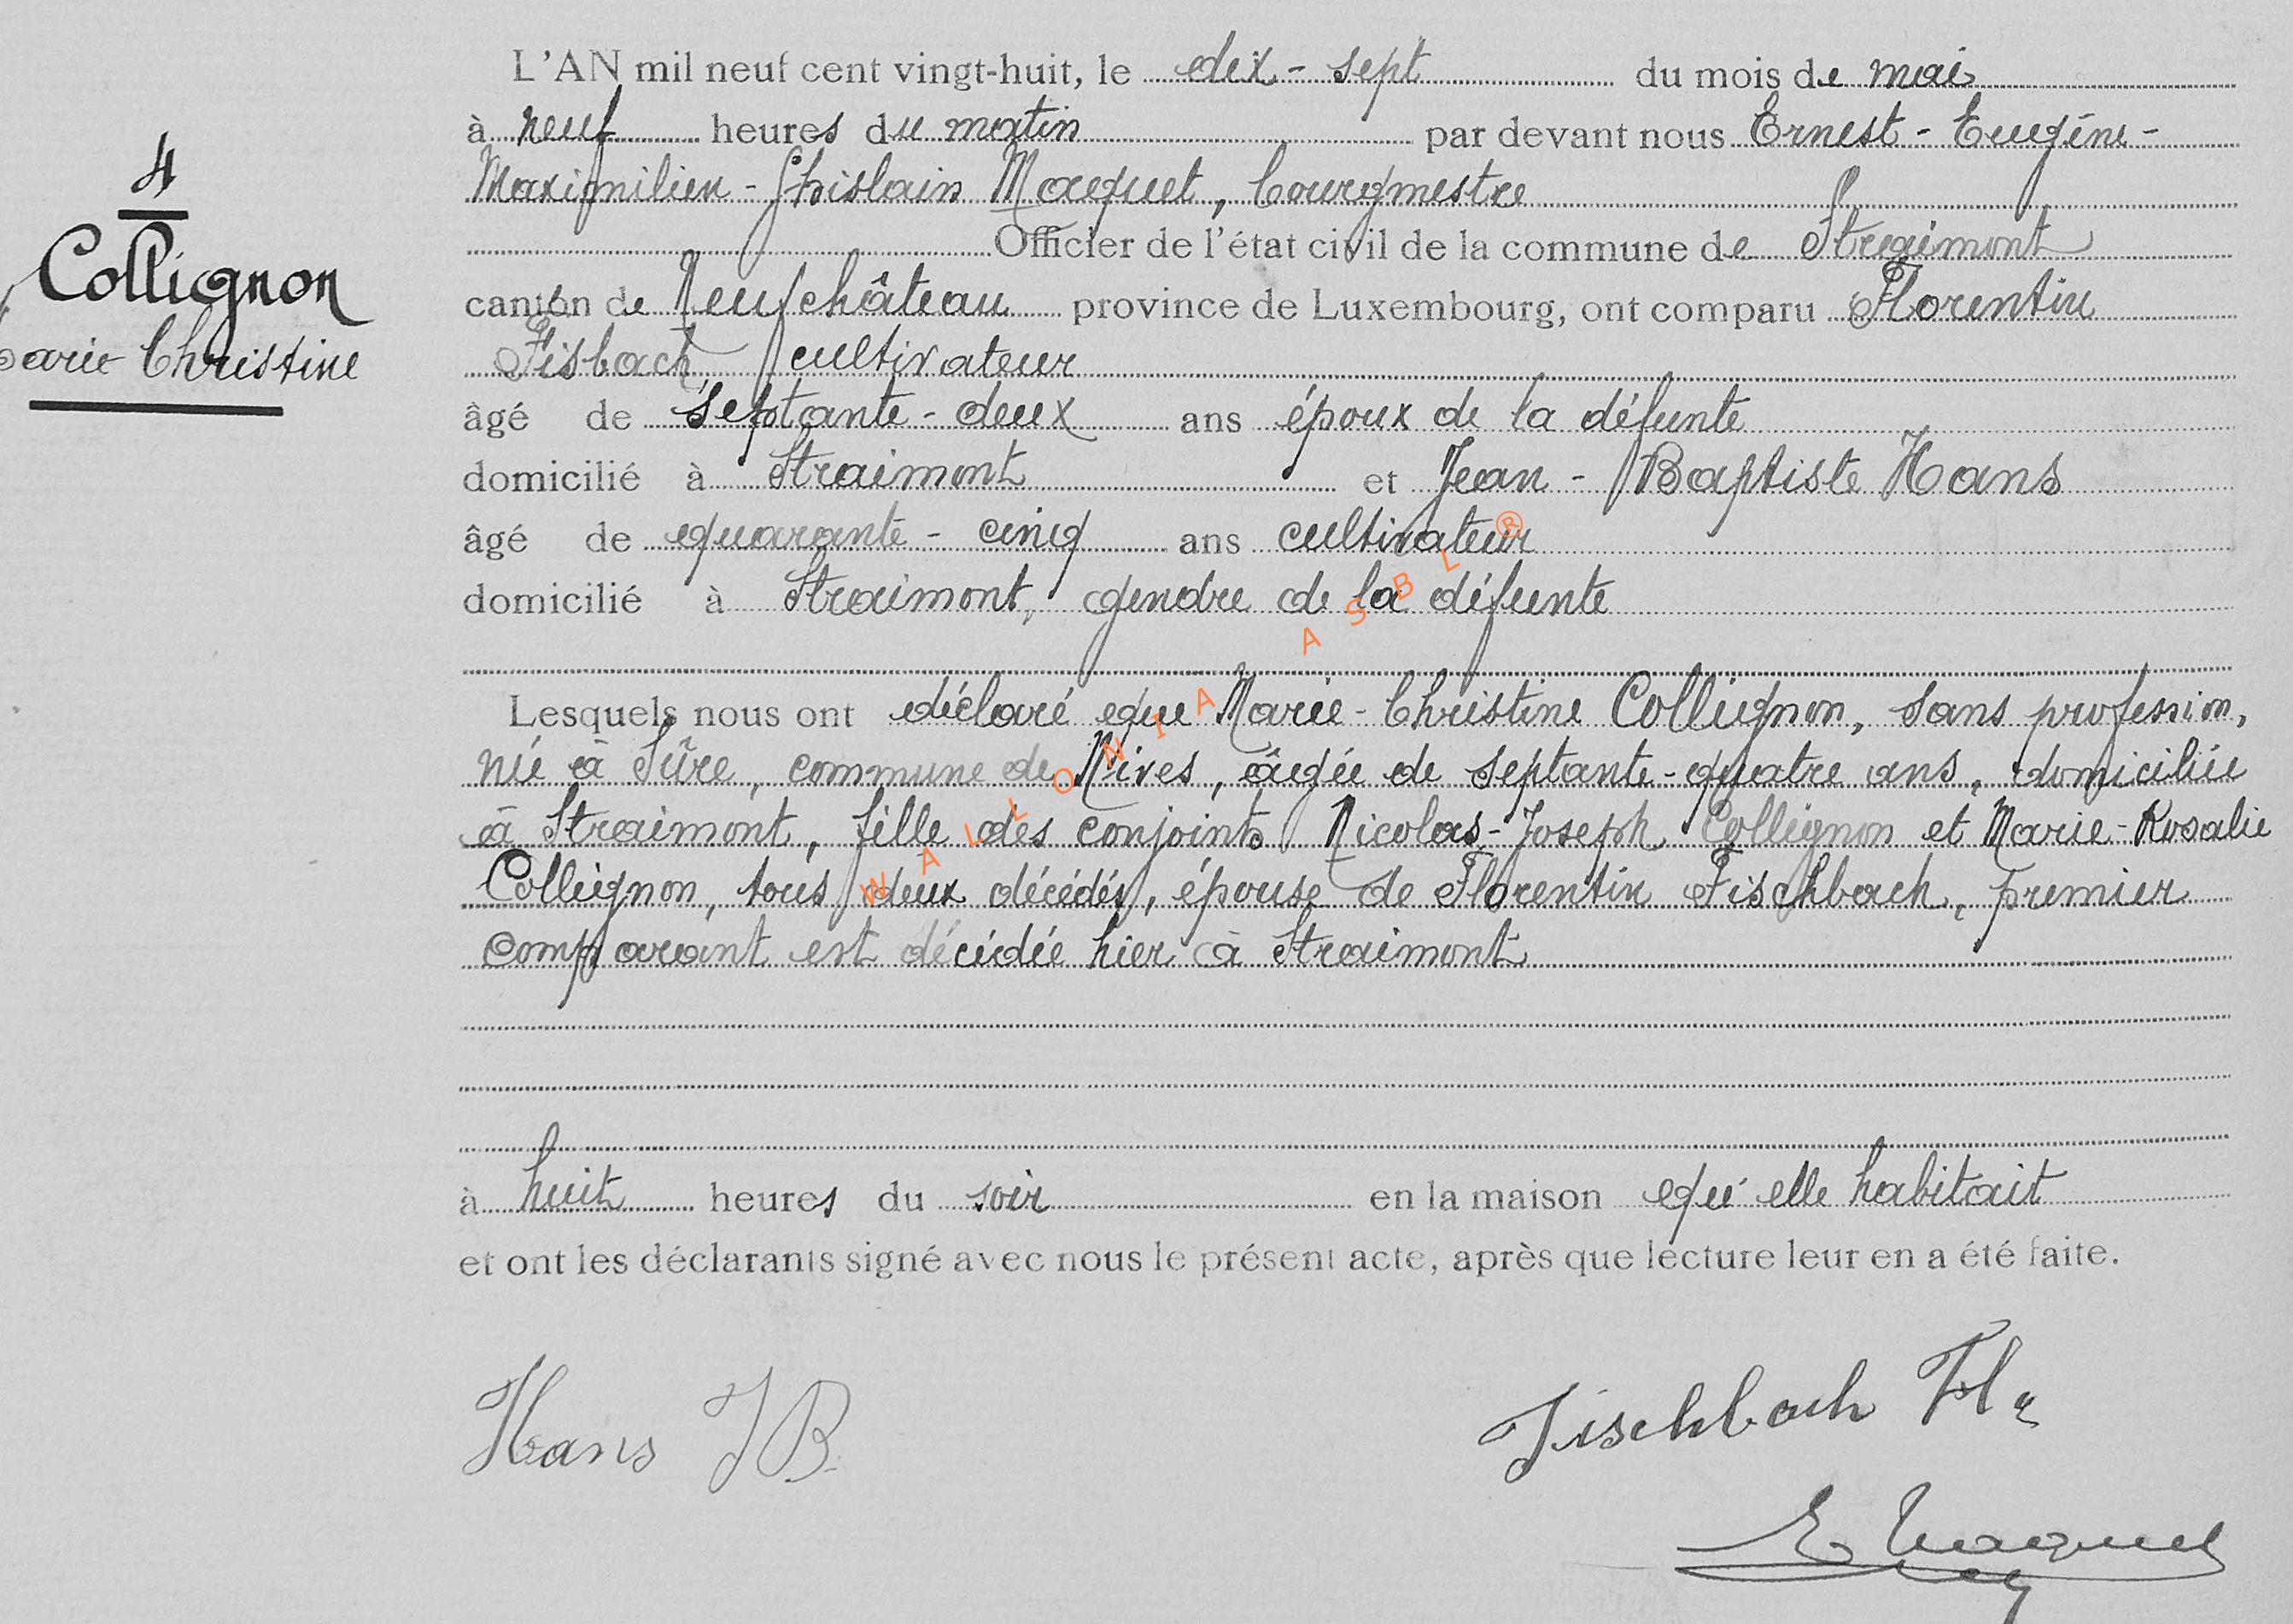 4
Collignon
Marie Christine
L'AN mil neuf cent vingt-huit, le dix-sept du mois de mai
à neuf heures du matin par devant nous Ernest-Eugène-
Maximilien-Ghislain Maquet, bourgmestre
Officier de l'état civil de la commune de Straimont
canton de Neufchâteau province de Luxembourg, ont comparu Florentin
Fisbach, cultivateur
âgé de septante-deux ans époux de la défunte
domicilié à Straimont et Jean-Baptiste Hans
âgé de quarante-cinq ans cultivateur
domicilié à Straimont, gendre de la défunte
Lesquels nous ont déclaré que Marie-Christine Collignon, sans profession,
née à Sûre, commune de Nives, âgée de septante-quatre ans, domiciliée
à Straimont, fille des conjoints Nicolas-Joseph Collignon et Marie-Rosalie
Collignon, tous deux décédés, épouse de Florentin Fischbach, premier
comparant est décédée hier à Straimont
à huit heures du soir en la maison qu'elle habitait
et ont les déclarants signé avec nous le présent acte, après que lecture leur en a été faite.
Hans JB.
Fischbach Fl
E Maquet
WALLONIA ASBL ®